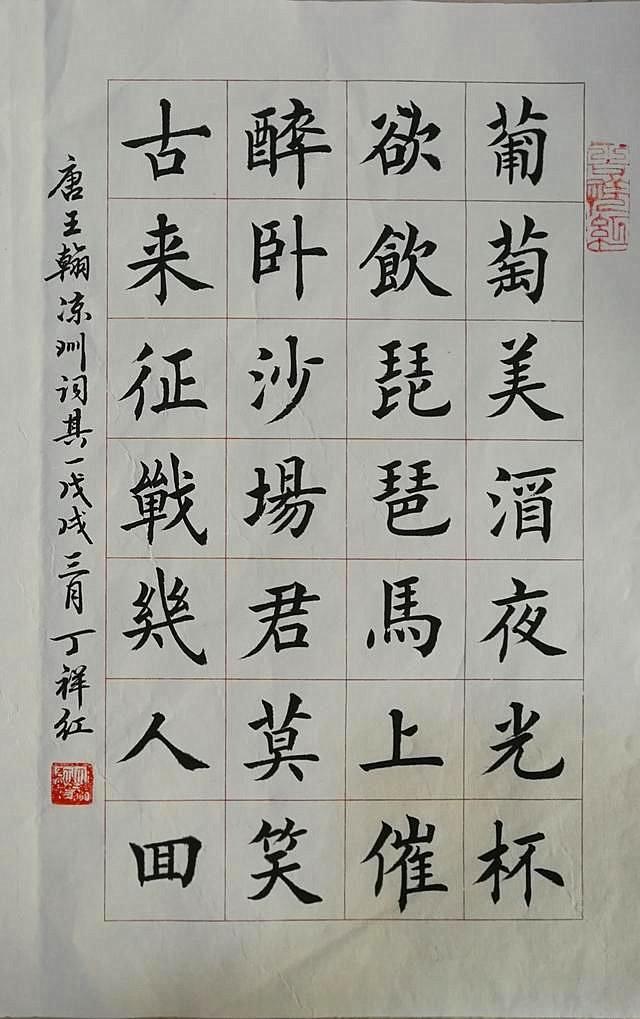 葡萄美酒夜光杯
欲飲琵琶馬上催
醉卧沙場君莫笑
古来征戰幾人囬
唐王翰凉州词其一戊戌三月丁祥红